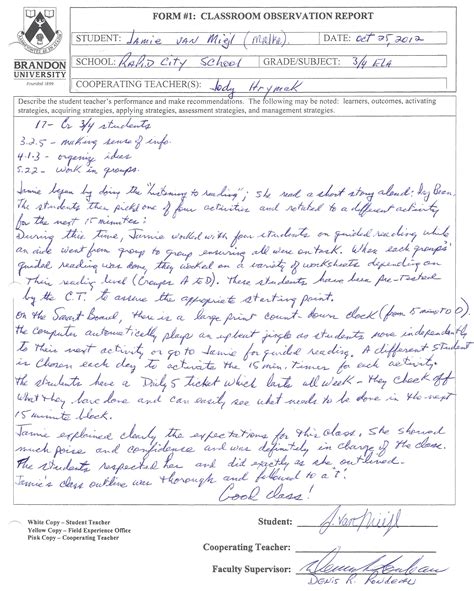 FORM #1: CLASSROOM OBSERVATION REPORT
STUDENT: Jamie van Migl
DATE: Oct 25, 2012
SCHOOL: Rapid City School
GRADE/SUBJECT: 3/4 ELA
COOPERATING TEACHER(S): Jody Hrymak
BRANDON
UNIVERSITY
Founded 1899
Describe the student teacher's performance and make recommendations. The following may be noted: learners, outcomes, activating
strategies, acquiring strategies, applying strategies, assessment strategies, and management strategies.
17- Gr 3/4 students
3.2.5 - making sense of info.
4.1.3 - organize ideas
5.2.2 - work in groups.
Jamie began by doing the "Listening to reading"; She read a short story aloud:
The students then picked one of four activities and rotated to a different activity
for the next 15 minutes:
During this time, Jamie worked with four students on guided reading while
an aide went from group to group ensuring all were on task. When each groups'
guided reading was done, they worked on a variety of worksheets depending on
Their reading level (Groups A to D). These students have been pre-tested
by the C.T. to assure the appropriate starting point.
On the Smart Board, there is a large print count-down clock (from 15 min to 0).
the computer automatically plays an upbeat jingle as students move independently
to their next activity or go to Jamie for guided reading. A different student
is chosen each day to activate the 15 min. timer for each activity.
The students have a Daily 5 ticket which lasts all week - they check off
what they have done and can easily see what needs to be done in the next
15 minute block.
Jamie explained clearly the expectations for this class. She showed
much poise and confidence and was definitely in charge of the class.
The students respected her and did exactly as she outlined.
Jamie's class outline were thorough and followed to a T.
Good class!
White Copy - Student Teacher
Yellow Copy - Field Experience Office
Pink Copy - Cooperating Teacher
Student: J. van Migl
Cooperating Teacher:
Faculty Supervisor:
Denis R.